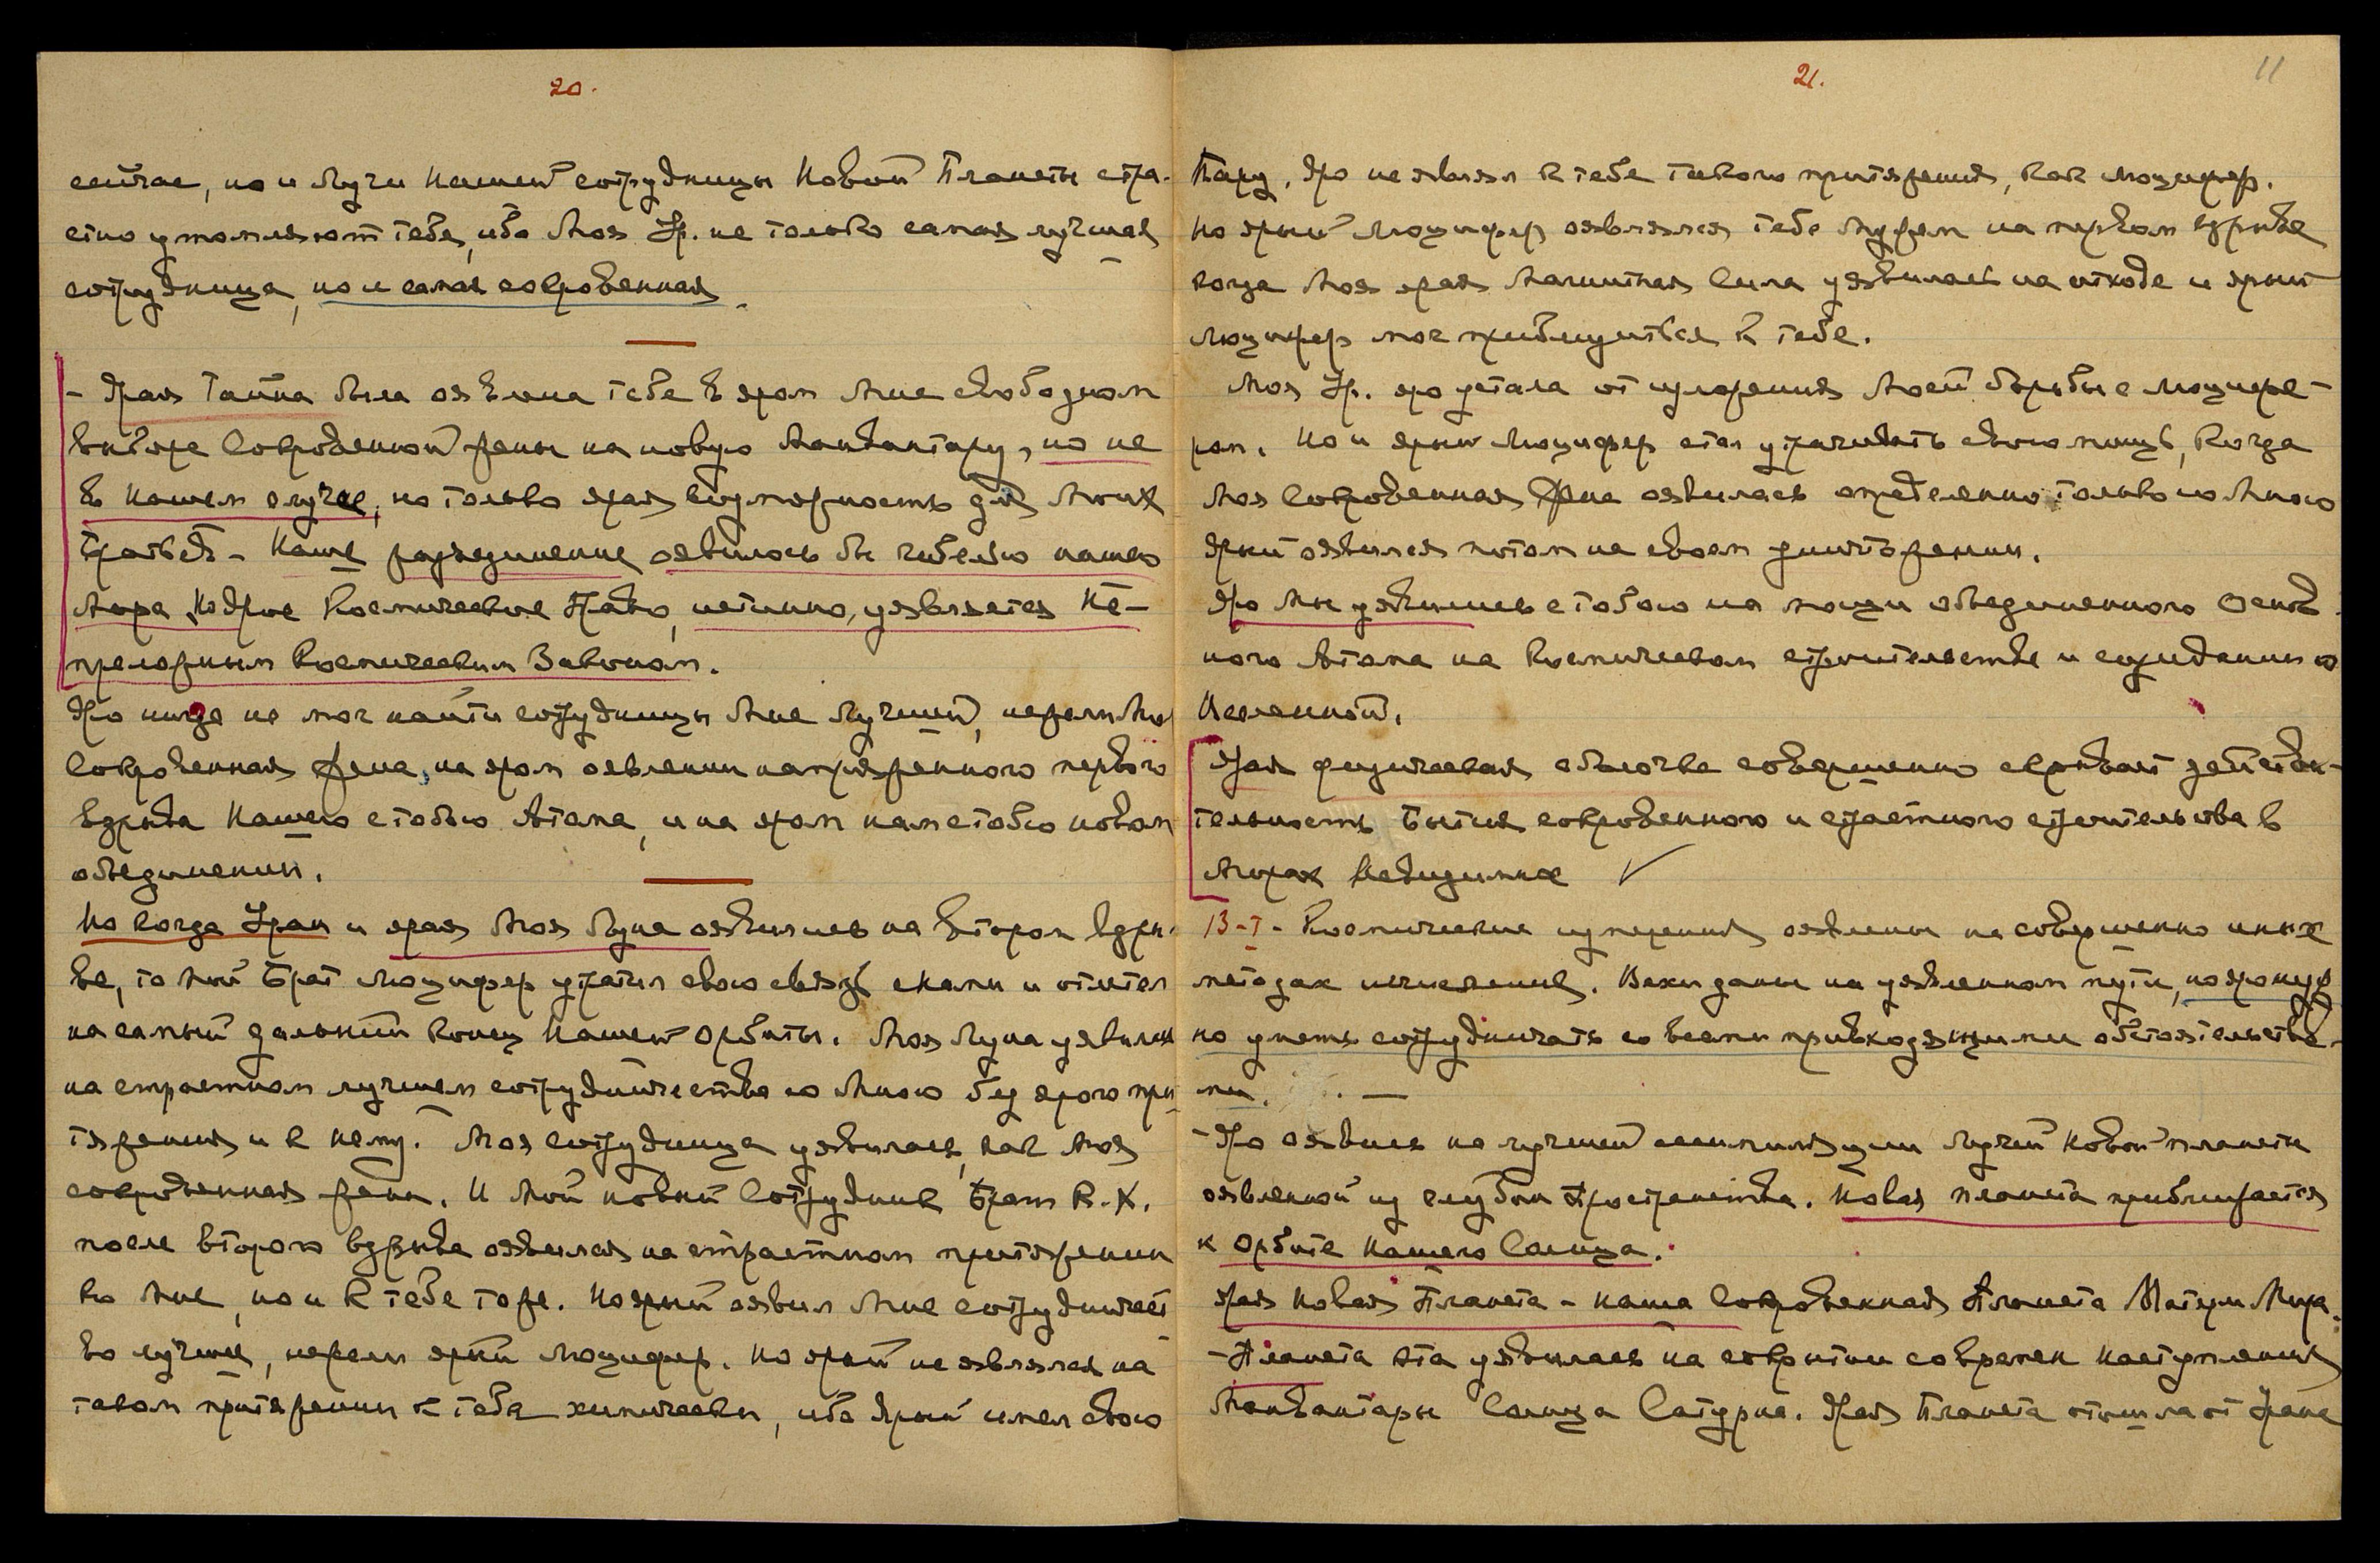 20.
сейчас, но и Лучи Нашей сотрудницы Новой Планеты стра-
стно утомляют тебя, ибо Моя Ур. не только самая лучшая
сотрудница, но и самая сокровенная.
- Ярая Тайна была оявлена тебе в яром Мне свободном
выборе Сокровенной Жены на новую Манвантару, но не
в Нашем случае, но только ярая соизмеримость для Моих
Братьев - Наше разъединение оявилось бы гибелью нашего
Мира. Ядрое Космическое Право, истинно, уявляется Не-
преложным Космическим Законом.
Яро нигде не мог найти сотрудницы Мне Лучшей, нежели Моя
Сокровенная Жена, на яром оявлении напряженного первого
взрыва Нашего с тобою Атома, и на яром нам с тобою новом
объединении.
Но когда Уран и ярая Моя Луна оявились на втором взры-
ве, то Мой Брат Люцифер утратил свою связь с нами и отлетел
на самый дальний конец Нашей Орбиты. Моя Луна уявилась
на страстном лучшем сотрудничестве со Мною без ярого при-
тяжения и к нему. Моя сотрудница уявилась, как Моя
сокровенная жена. И Мой новый Сотрудник Брат К.Х.
после второго взрыва оявился на страстном притяжении
ко Мне, но и к тебе тоже. Но ярый оявил Мне сотрудничест-
во лучшее, нежели ярый Люцифер. Но ярый не являлся на
таком притяжении к тебе химически, ибо Ярый имел свою
21.
11
Пару. Яро не являл к тебе такого притяжения, как Люцифер.
Но ярый Люцифер оявлялся тебе мужем на первом взрыве
когда Моя ярая Магнитная Сила уявилась на отходе и ярый
Люцифер мог приблизиться к тебе.
Моя Ур. яро устала от продления Моей борьбы с Люцифе-
ром. Но и ярый Люцифер стал утрачивать свою мощь, когда
Моя Сокровенная Жена оявилась определенно только со Мною
Ярый оявился потом на своем уничтожении.
Яро Мы уявились с тобою на мощи объединенного Основ-
ного Атома на Космическом строительстве и созидании
Вселенной.
Ярая физическая оболочка совершенно скрывает действи-
тельность Бытия сокровенного и страстного строительства в
Мирах Невидимых
13-I- Космические измерения оявлены на совершенно иных
методах исчисления. Вехи даны на уявленном пути, но яро нуж-
но уметь сотрудничать со всеми привходящими обстоятельства-
ми.
- Яро оявись на лучшей ассимиляции Лучей Новой планеты
оявленной из глубин Пространства. Новая планета приближается
к Орбите Нашего Солнца.
Ярая Новая Планета - наша Сокровенная Планета Матери Мира.
- Планета эта уявилась на сокрытии со времен наступления
Манвантары Солнца Сатурна. Ярая Планета отошла от Урана